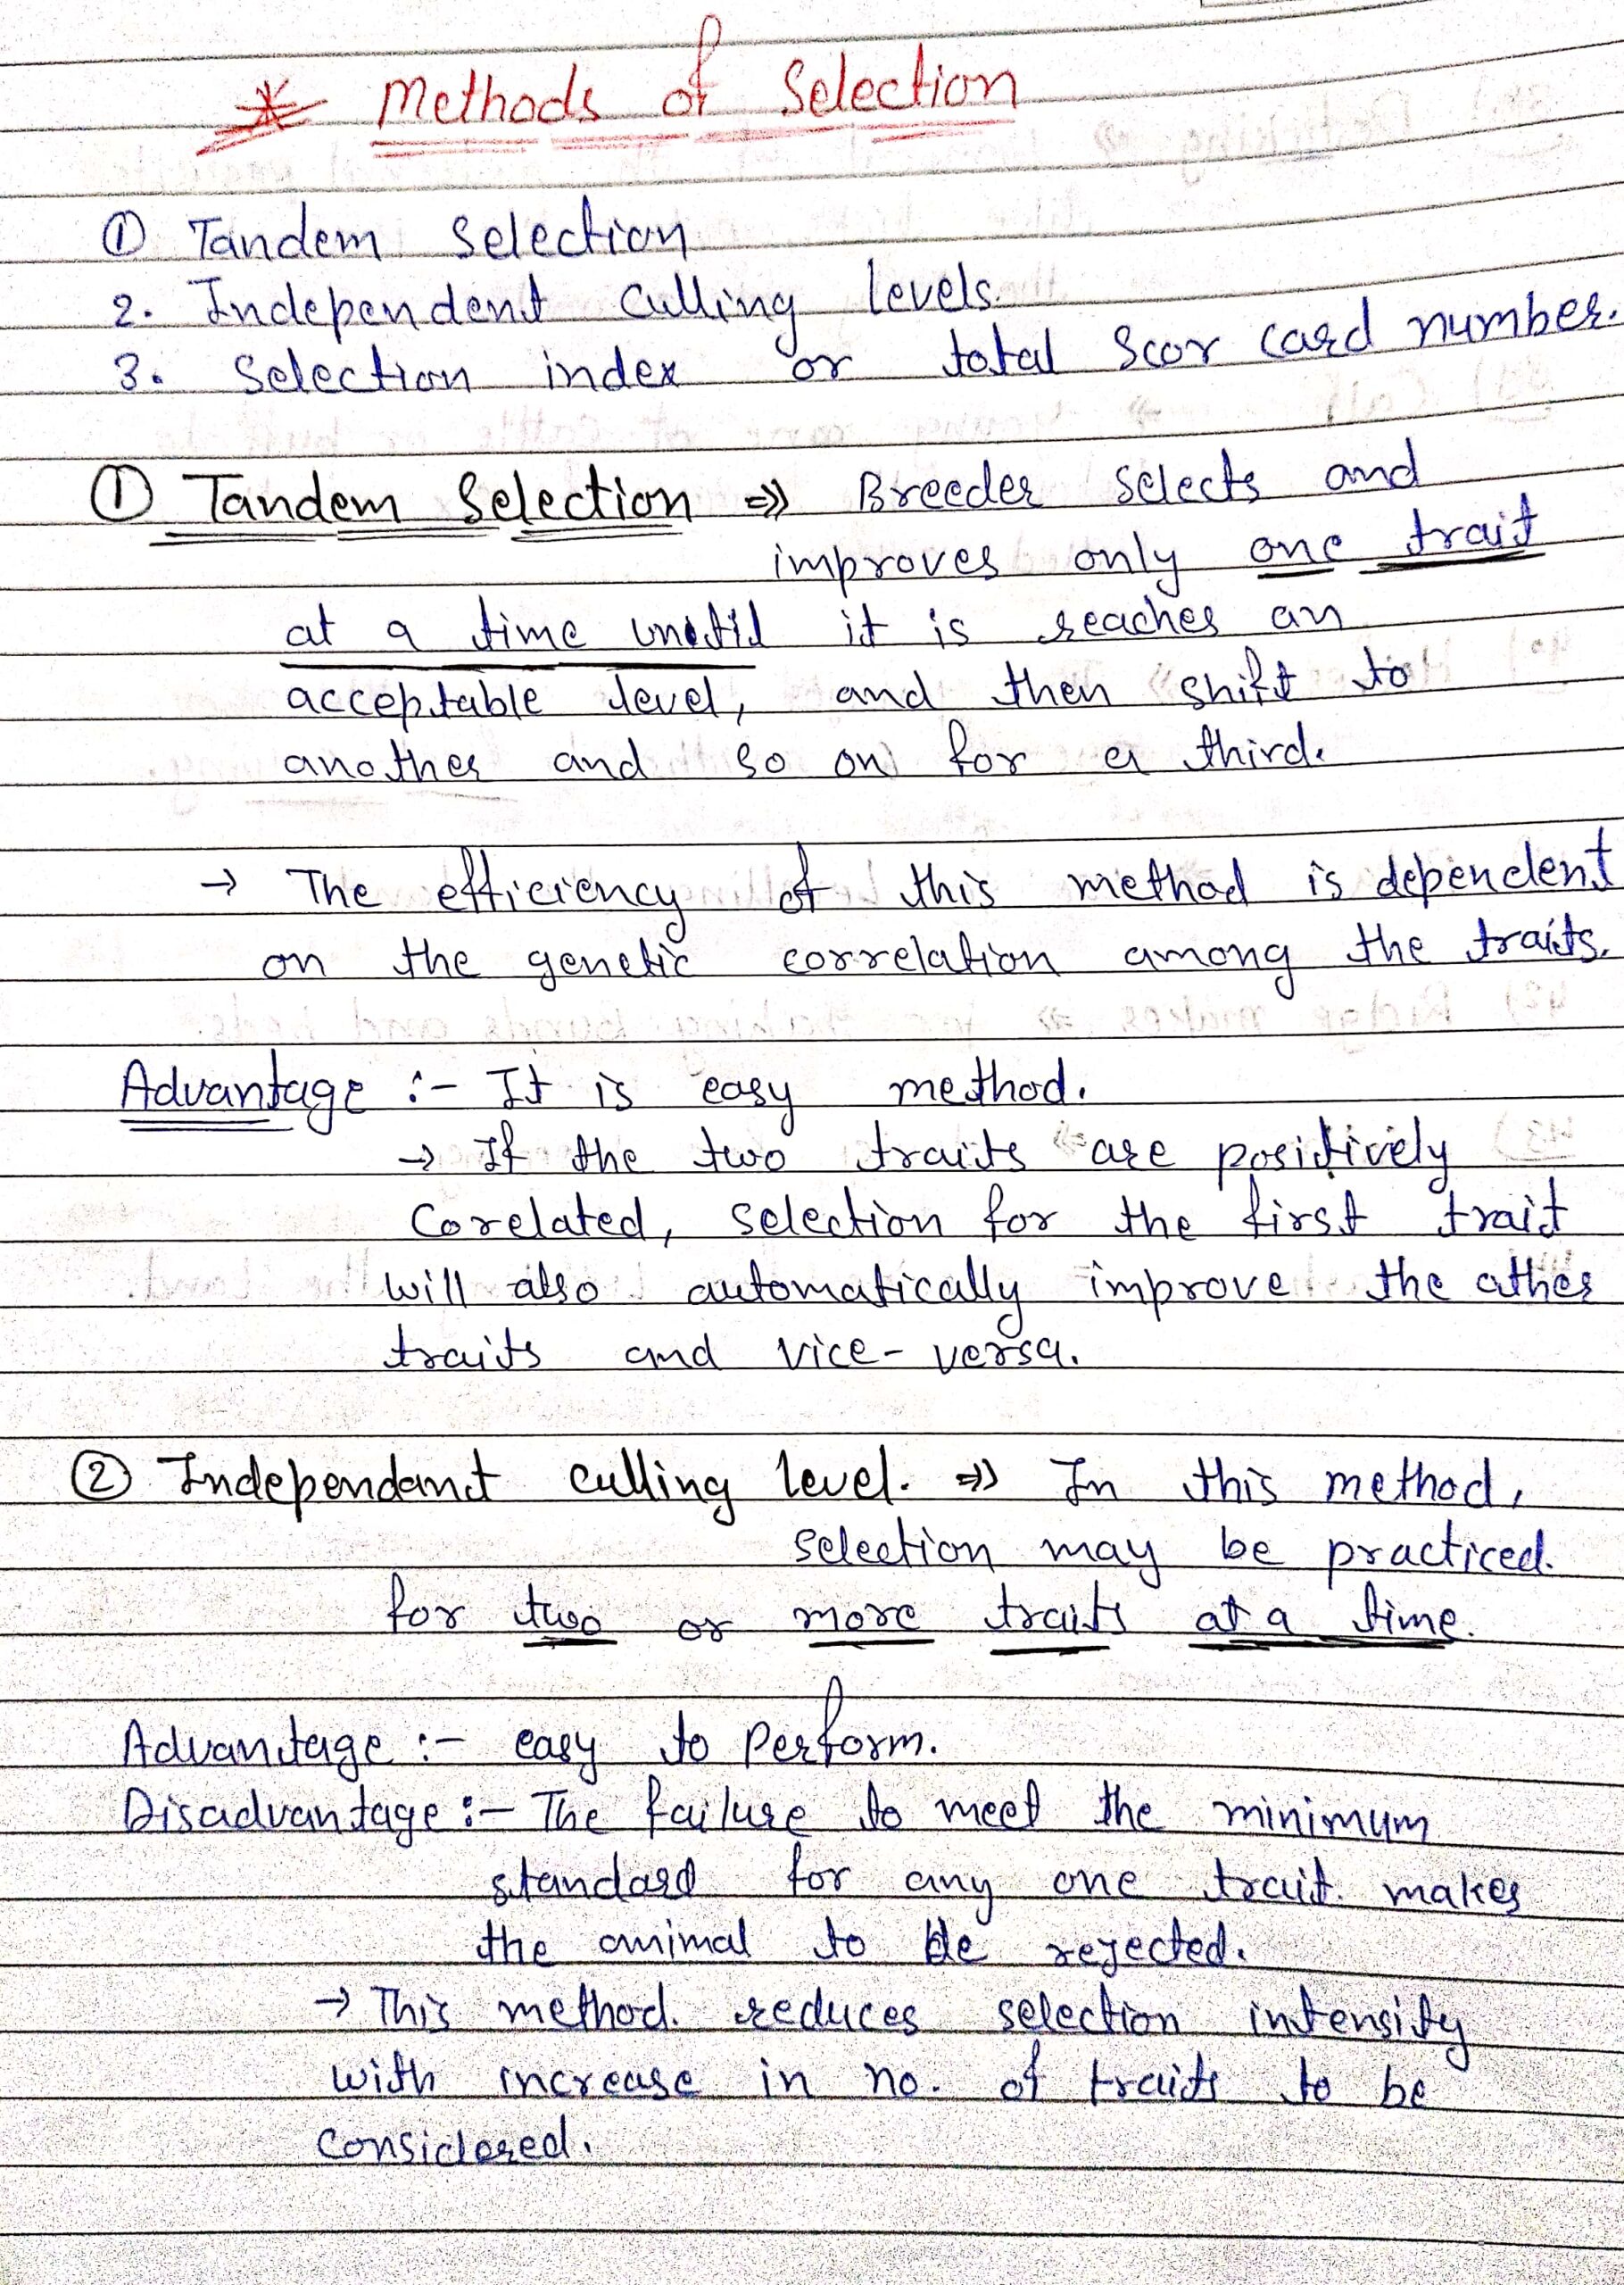 * Methods of Selection
① Tandem Selection
2. Independent Culling levels.
3. Selection index or total Scor Card number.
① Tandem Selection ⇒» Breeder selects and
improves only one trait
at a time until it is reaches an
acceptable level, and then shift to
another and so on for a third.
→ The efficiency of this method is dependent
on the genetic correlation among the traits.
Advantage :- It is easy method.
→ If the two traits are positively
Corelated, selection for the first trait
will also automatically improve the other
traits and vice-versa.
② Independant culling level. ⇒» In this method,
selection may be practiced.
for two or more traits at a time.
Advantage :- easy to perform.
Disadvantage :- The failure to meet the minimum
standard for any one trait makes
the animal to be rejected.
→ This method. reduces selection intensity
with increase in no. of traits to be
considered.